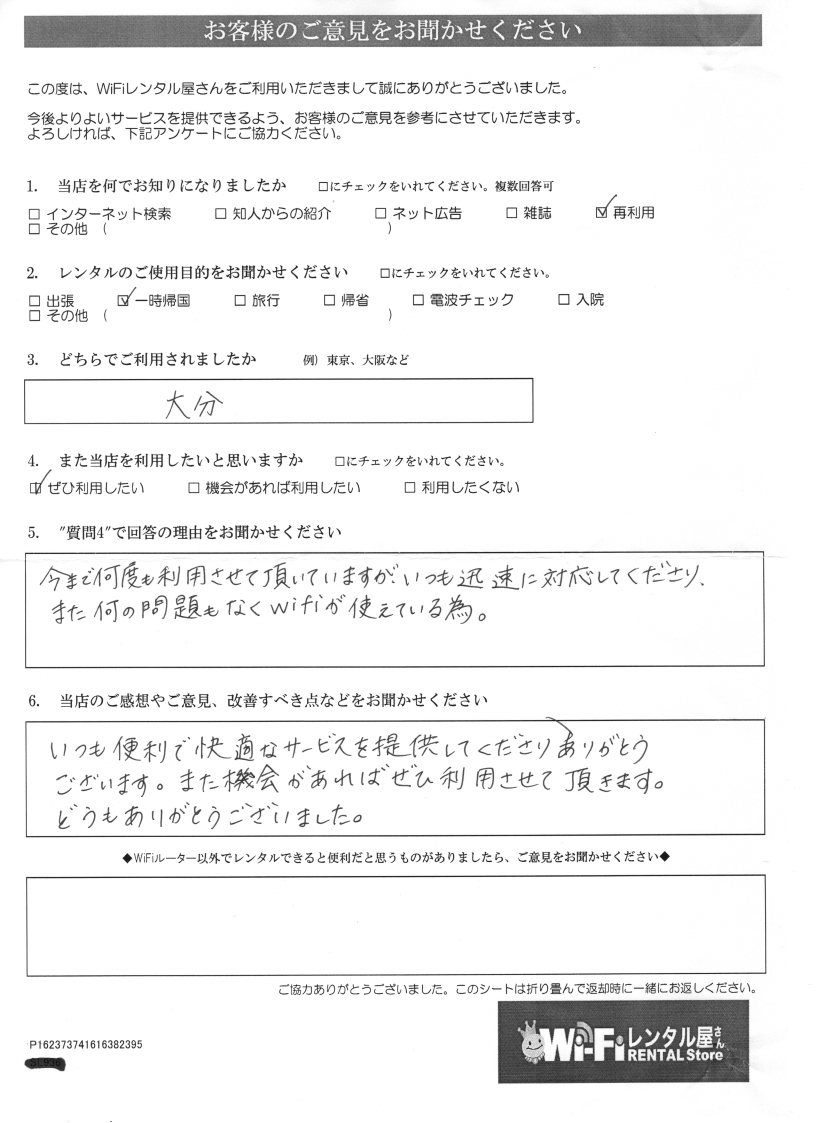 お客様のご意見をお聞かせください
この度は、WiFiレンタル屋さんをご利用いただきまして誠にありがとうございました。
今後よりよいサービスを提供できるよう、お客様のご意見を参考にさせていただきます。
よろしければ、下記アンケートにご協力ください。
1. 当店を何でお知りになりましたか □にチェックをいれてください。複数回答可
□ インターネット検索 □ 知人からの紹介 □ ネット広告 □ 雑誌 ☑ 再利用
□ その他 ( )
2. レンタルのご使用目的をお聞かせください □にチェックをいれてください。
□ 出張 ☑ 一時帰国 □ 旅行 □ 帰省 □ 電波チェック □ 入院
□ その他 ( )
3. どちらでご利用されましたか 例) 東京、大阪など
大分
4. また当店を利用したいと思いますか □にチェックをいれてください。
☑ ぜひ利用したい □ 機会があれば利用したい □ 利用したくない
5. "質問4"で回答の理由をお聞かせください
今まで何度も利用させて頂いていますが、いつも迅速に対応してくださり、
また何の問題もなくwifiが使えている為。
6. 当店のご感想やご意見、改善すべき点などをお聞かせください
いつも便利で快適なサービスを提供してくださりありがとう
ございます。また機会があればぜひ利用させて頂きます。
どうもありがとうございました。
◆WiFiルーター以外でレンタルできると便利だと思うものがありましたら、ご意見をお聞かせください◆
ご協力ありがとうございました。このシートは折り畳んで返却時に一緒にお返しください。
P162373741616382395
Wi-Fiレンタル屋さん
RENTAL Store